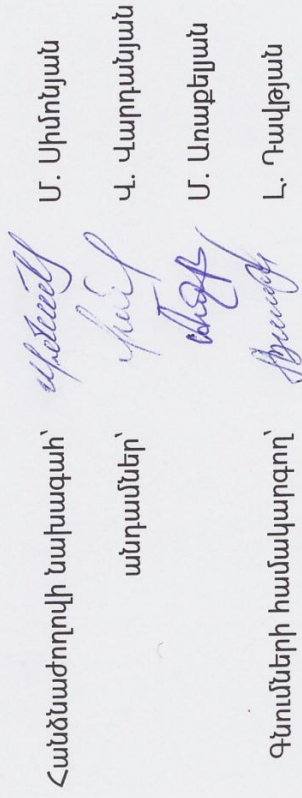 Հանձնաժողովի նախագահ՝ Մ. Սիմոնյան
անդամներ՝ Վ. Վարդանյան
Մ. Առաքելյան
Գնումների համակարգող՝ Լ. Դավթյան